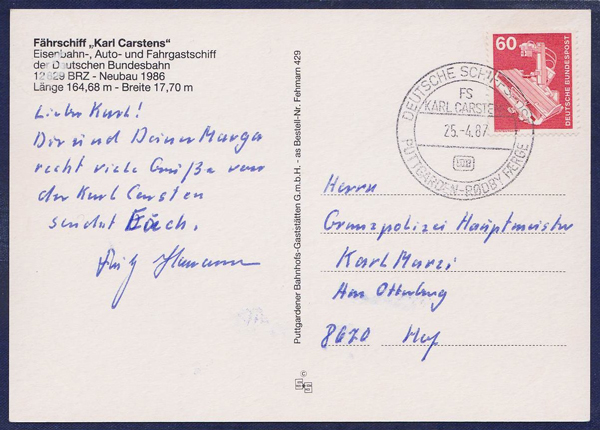 Fährschiff „Karl Carstens"
Eisenbahn-, Auto- und Fahrgastschiff
der Deutschen Bundesbahn
12 829 BRZ - Neubau 1986
Länge 164,68 m - Breite 17,70 m
Lieber Karl!
Dir und Deiner Marga
recht viele Grüße von
der Karl Carsten
sendet Euch.
Puttgardener Bahnhofs-Gaststätten G.m.b.H. - as Bestel-Nr. Fehmarn 429
60
DEUTSCHE BUNDESPOST
DEUTSCHE SCHIFFSPOST
FS
KARL CARSTENS
25.-4.87
PUTTGARDEN-RØDBY FÆRGE
Herrn
Grenzpolizei Hauptmeister
Karl
Am Otterberg
8670 Hof